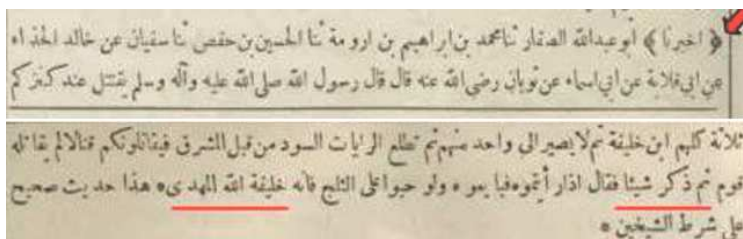 ﴿ اخبرنا ﴾ ابو عبدالله الصفار ثنا محمد بن ابراهيم بن ارومة ثنا الحسين بن حفص ثنا سفيان عن خالد الحذاء
عن ابي قلابة عن ابي اسماء عن ثوبان رضي الله عنه قال قال رسول الله صلى الله عليه وآله وسلم يقتتل عند كنزكم
ثلاثة كلهم ابن خليفة ثم لا يصير الى واحد منهم ثم تطلع الرايات السود من قبل المشرق فيقاتلونكم قتالا لم يقاتله
قوم ثم ذكر شيئا فقال اذا رأيتموه فبايعوه ولو حبوا على الثلج فانه خليفة الله المهدى ه هذا حديث صحيح
على شرط الشيخين ه